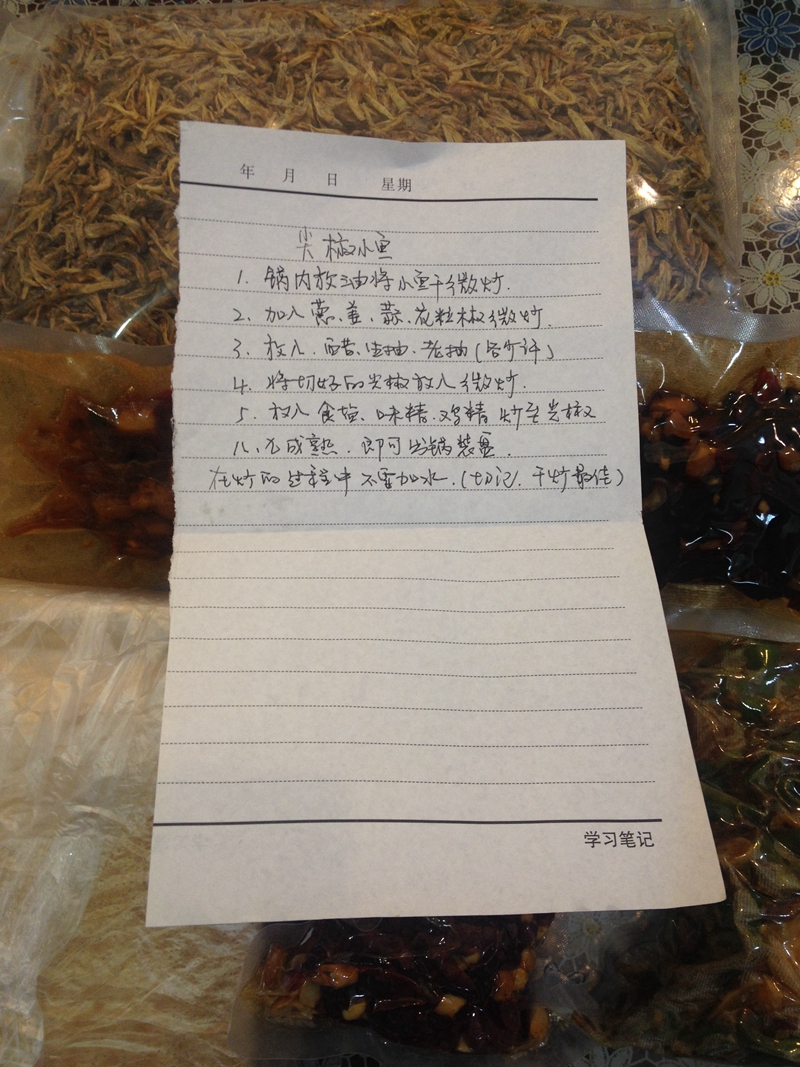 年 月 日 星期
尖椒小鱼
1. 锅内放油将小鱼干微炒.
2. 加入葱、姜、蒜、花粒椒微炒.
3. 放入.醋、生抽.老抽(各少许)
4. 将切好的尖椒放入微炒.
5. 放入食盐、味精.鸡精炒至尖椒
八、九成熟.即可出锅装盘.
在炒的过程中不要加水.(切记.干炒最佳)
学习笔记